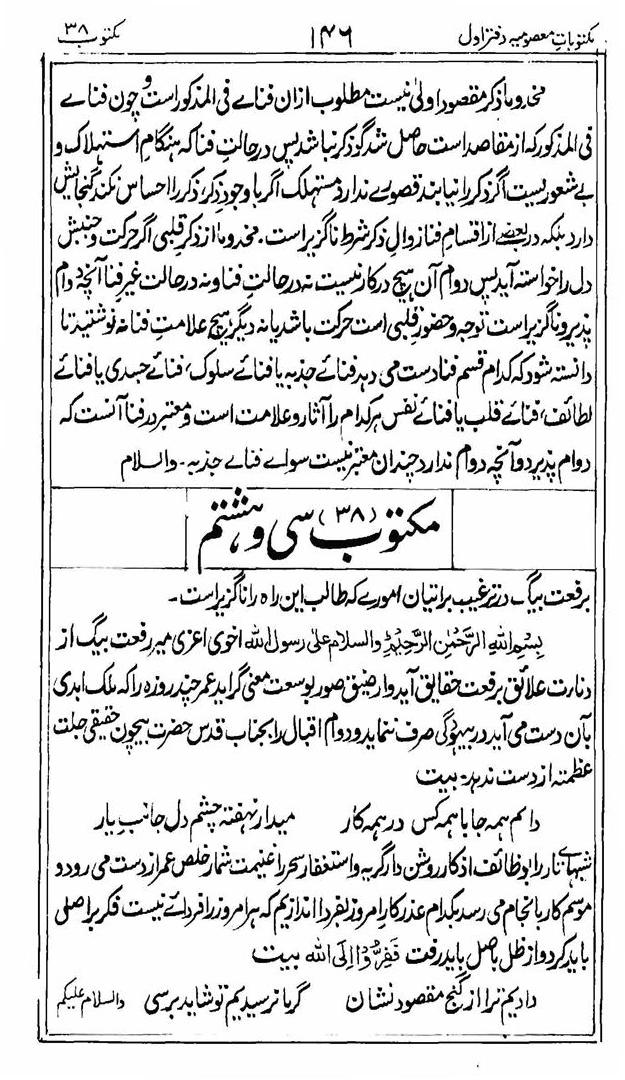 مکتوباتِ معصومیہ دفتر اول ۱۴۶ مکتوب ۳۸
مخدوما ذکر مقصود اولیٰ نیست مطلوب ازان فناے فی المذکور است و چون فناے
فی المذکور کہ از مقاصد است حاصل شد گو ذکر نباشد پس در حالتِ فنا کہ ہنگامِ استہلاک و
بے شعوریست اگر ذکر را نیابند قصورے ندارد مستہلک اگر باوجودِ ذکر، ذکر را احساس نکند گنجایش
دارد بلکہ در بعضے از اقسامِ فنا زوالِ ذکر شرط ناگزیر است. مخدوما از ذکرِ قلبی اگر حرکت و جنبش
دل را خواستہ آید پس دوام آن ہیچ درکار نیست نہ در حالتِ فنا و نہ در حالتِ غیر فنا آنچہ دوام
پذیر و ناگزیر است توجہ و حضورِ قلبی است حرکت باشد یا نہ دیگر ہیچ علامتِ فنا نہ نوشتید تا
دانستہ شود کہ کدام قسم فنا دست می دہد فنائے جذبہ یا فنائے سلوک، فنائے جسدی یا فنائے
لطائف، فنائے قلب یا فنائے نفس ہر کدام را آثار و علامت است و معتبر در فنا آنست کہ
دوام پذیرد و آنچہ دوام ندارد چندان معتبر نیست سواے فناے جذبہ ۔ والسلام
مکتوب (۳۸) سی و ہشتم
برفعت بیگ در ترغیب بر اتیان امورے کہ طالب این راہ را ناگزیر است ۔
بِسْمِ اللهِ الرَّحْمٰنِ الرَّحِيْمِ والسلام علیٰ رسول الله اخوی اعزی میر رفعت بیگ از
دنارت علائق برفعت حقایق آید و از ضیق صور بوسعت معنی گراید عمر چند روزہ را کہ ملک ابدی
بآن دست می آید در بیہودگی صرف ننماید و دوام اقبال را بجناب قدس حضرت بیچون حقیقی جلت
عظمتہ از دست ندہد ۔ بیت
دائم ہمہ جا با ہمہ کس در ہمہ کار میدار نہفتہ چشم دل جانبِ یار
شبہاے تار را بوظائف اذکار روشن دار گریہ و استغفار سحر را غنیمت شمار خلص عمر از دست می رود و
موسم کار بانجام می رسد بکدام عذر کار امروز بفردا اندازیم کہ ہر امروز را فردائے نیست فکر بر اصلی
باید کرد و از ظل باصل باید رفت فَفِرُّوْا اِلَى الله بیت
دادیم ترا از گنجِ مقصود نشان گر ما نرسیدیم تو شاید برسی والسلام علیکم